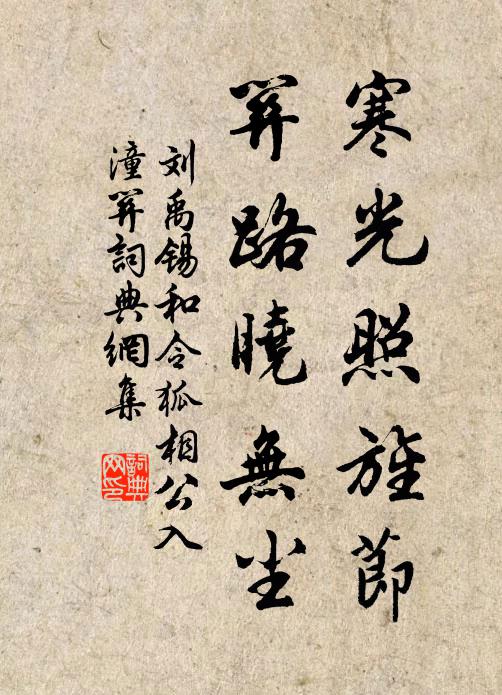 寒光照旌節
關路曉無塵
刘禹锡和令狐相公入
潼關詞典網集
詞典网印